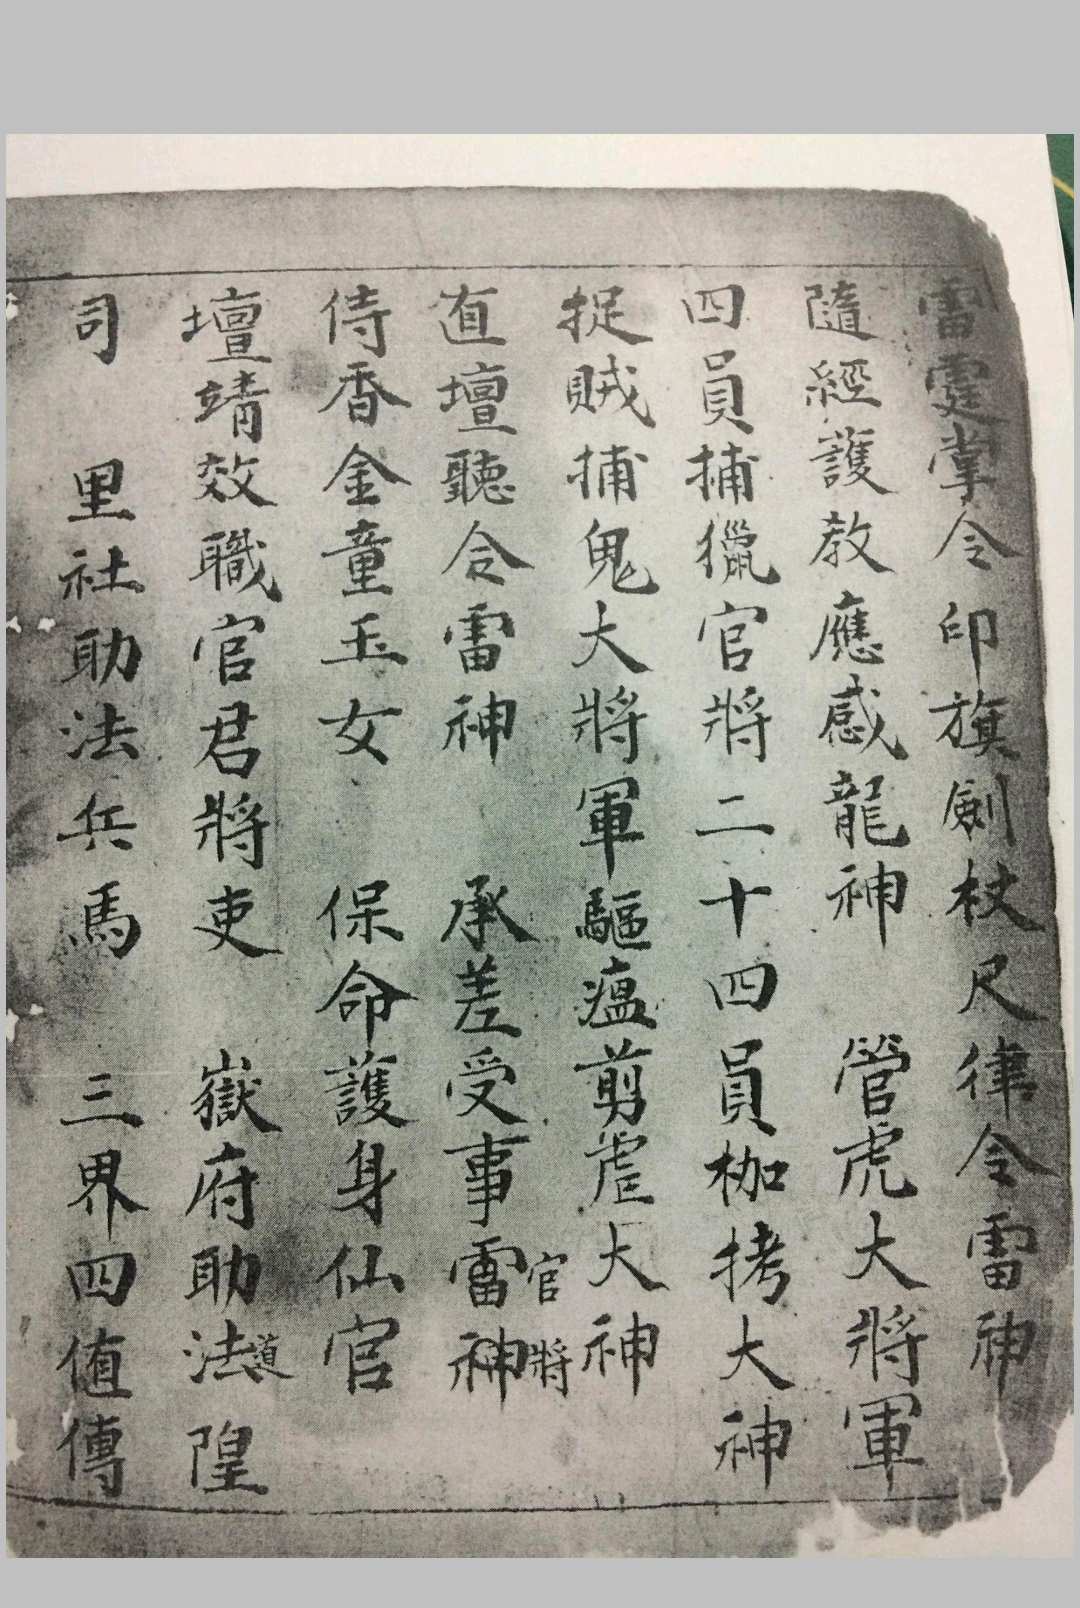 雷霆掌令印旗劍杖尺律令雷神
隨經護教應感龍神　管虎大將軍
四員捕獵官將二十四員枷拷大神
捉賊捕鬼大將軍驅瘟剪虐大神
直壇聽令雷神　承差受事雷神官將
侍香金童玉女　保命護身仙官
壇靖效職官君將吏　嶽府助法道隍
司　里社助法兵馬　三界四值傳